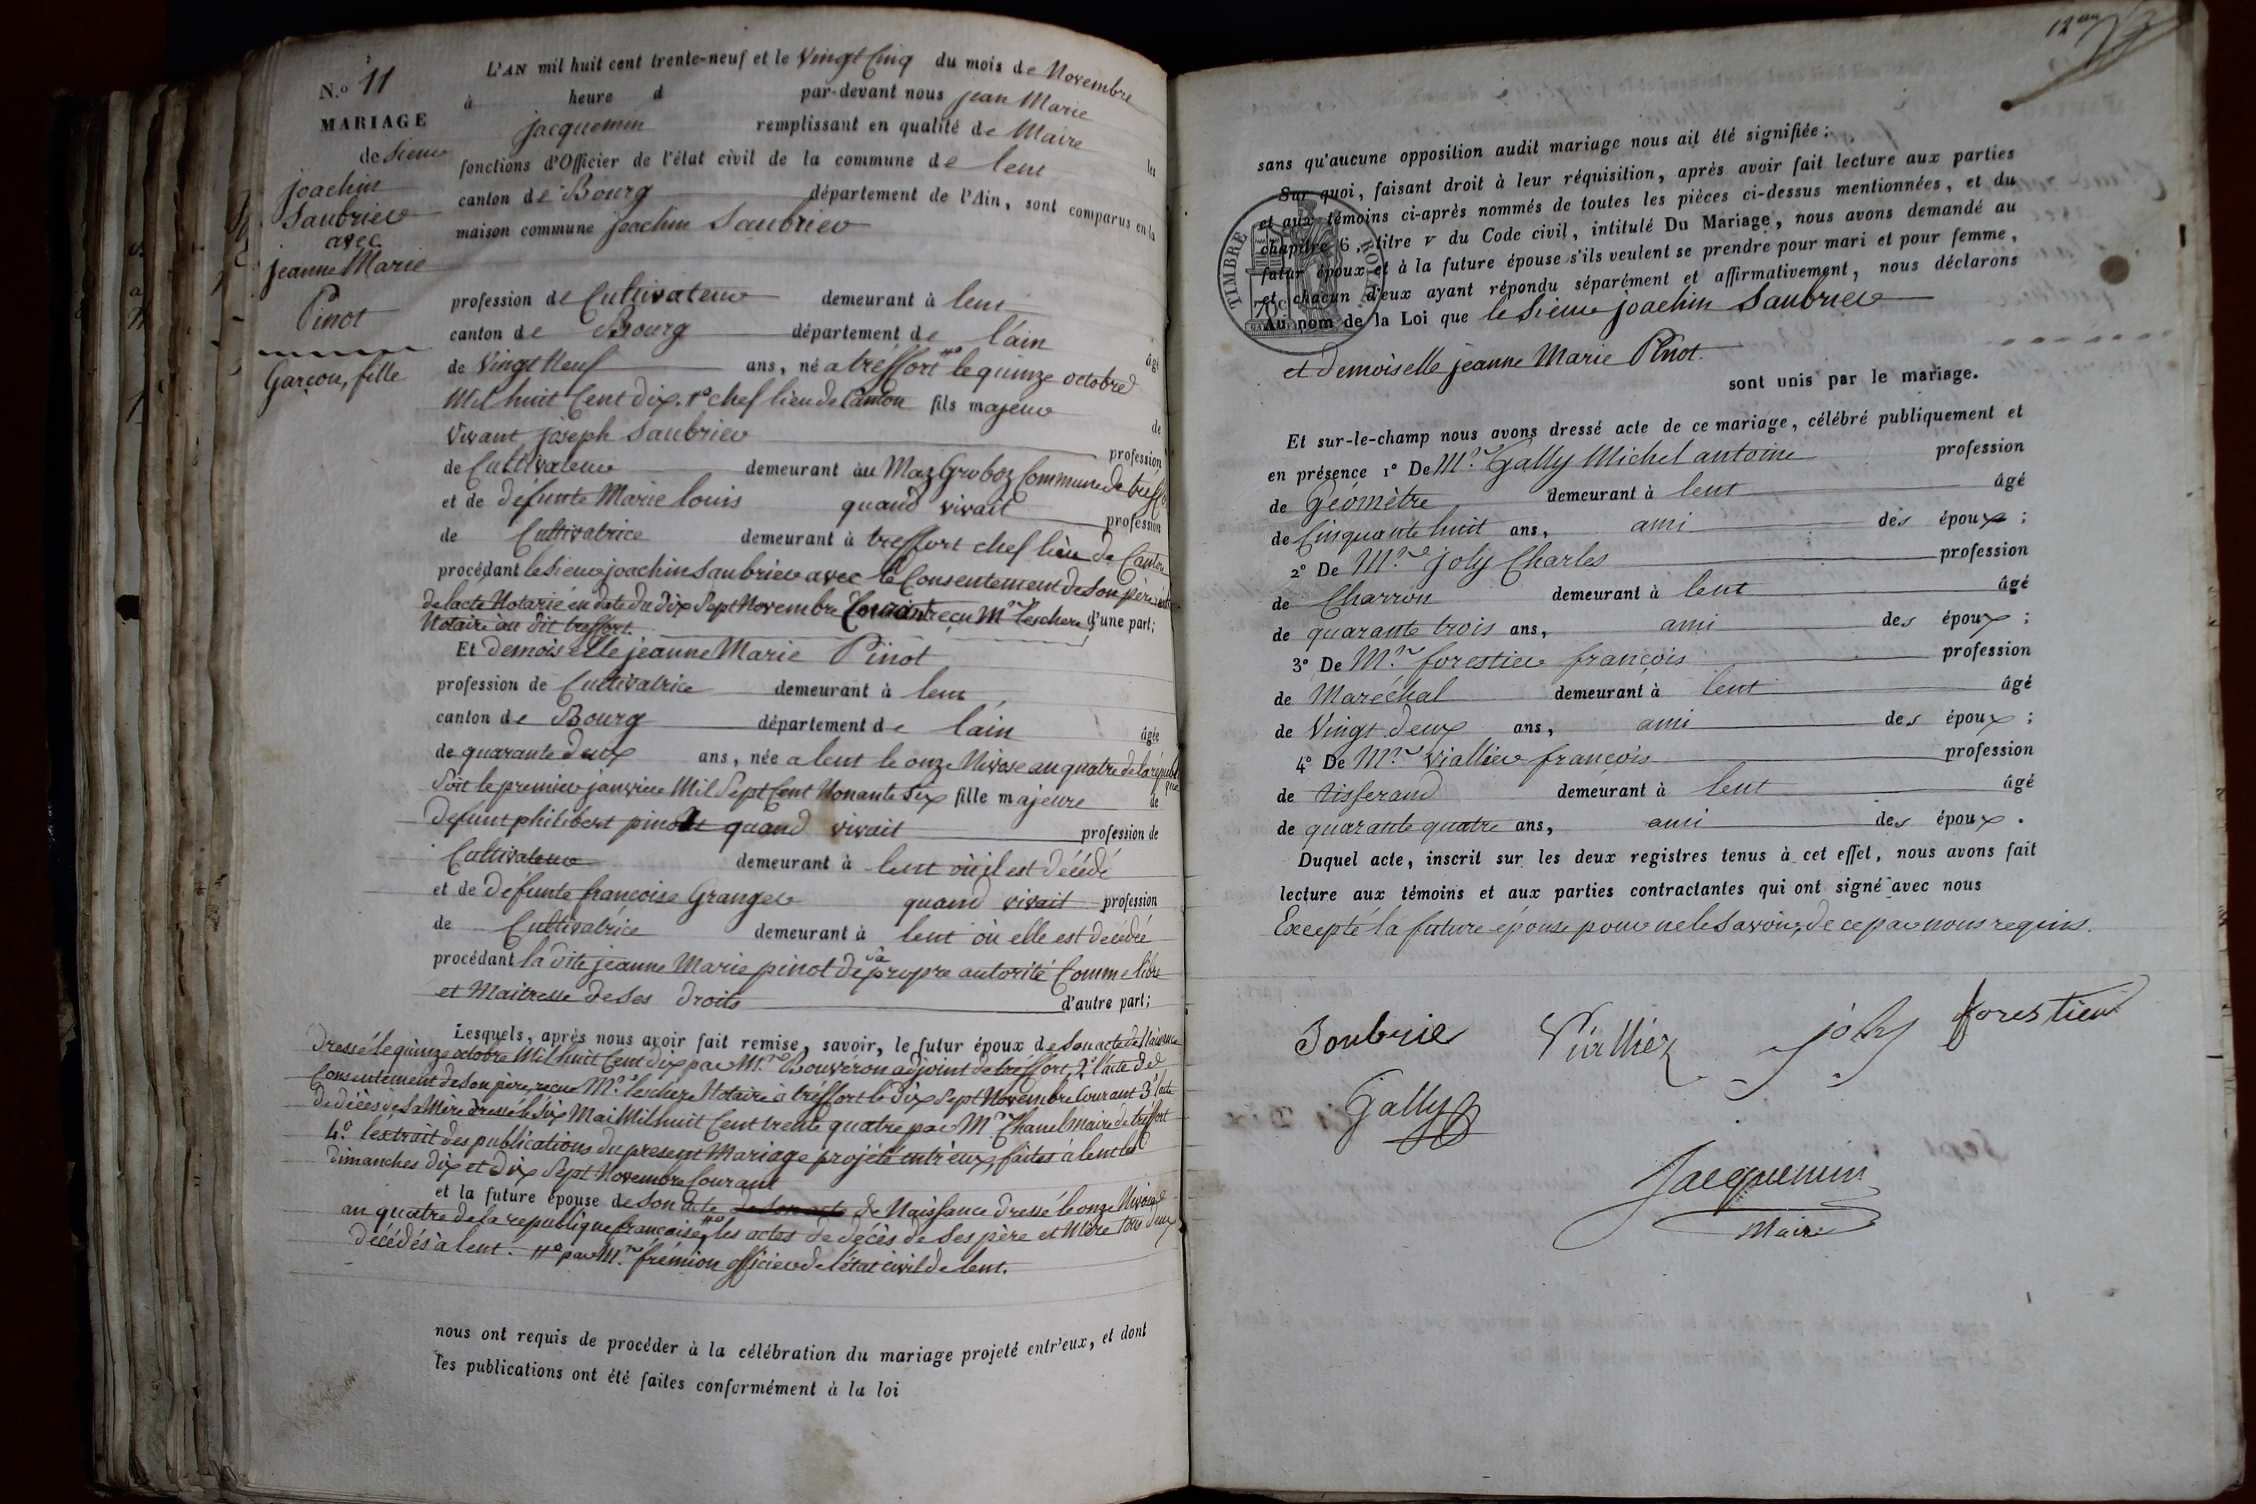 N.º 11
MARIAGE
de Sieur
joachin
Saubrier
avec
jeanne Marie
Pinot
Garçon, fille
L'AN mil huit cent trente-neuf et le Vingt Cinq du mois de Novembre
à heure d par-devant nous jean Marie
jacquemin remplissant en qualité de Maire les
fonctions d'Officier de l'état civil de la commune de lent
canton de Bourg département de l'Ain, sont comparus en la
maison commune joachin Saubrier
profession de Cultivateur demeurant à lent
canton de Bourg département de l'ain âgé
de Vingt Neuf ans, né a treffort le quinze octobre
Mil huit Cent dix. chef lieu de Canton fils majeur de
Vivant joseph Saubrier profession
de Cultivateur demeurant au Maz Groboz Commune de treffort
et de défunte Marie louis quand vivait profession
de Cultivatrice demeurant à treffort chef lieu de Canton
procédant le Sieur joachin Saubrier avec le Consentement de Son père
de lacte Notarié en date du Dix Sept Novembre Courant recu Mre lescher d'une part;
Notaire au dit treffort.
Et demoiselle jeanne Marie Pinot
profession de Cultivatrice demeurant à lent
canton de Bourg département de l'ain âgée
de quarante deux ans, née a lent le onze Nivose an quatre de la république
Soit le premier janvier Mil Sept Cent Nonante Six fille majeure de
defunt philibert pinot quand vivait profession de
Cultivateur demeurant à lent où il est décédé
et de défunte francoise Granger quand vivait profession
de Cultivatrice demeurant à lent où elle est decedée
procédant la dite jeanne Marie pinot de sa propre autorité Comme libre
et Maitresse de Ses droits d'autre part;
Lesquels, après nous avoir fait remise, savoir, le futur époux de Son acte de Naissance
dressé le quinze octobre Mil huit Cent dix par Mre Bouvéron adjoint de tréffort, 2º l'acte de
Consentement de Son père, recu Mre lescher Notaire à tréffort le Dix Sept Novembre Courant 3º l'acte
de décès de Sa Mère dressé le Six Mai Mil huit Cent trente quatre par Mr Chanel Maire de tréffort
4.º l'extrait des publications du present Mariage projeté entr'eux, faites à lent les
dimanches dix et dix Sept Novembre Courant
et la future épouse de Son acte de Naissance dressé le onze Nivose
an quatre de la republique francaise, les actes de décès de Ses père et Mère tous deux
décédés à lent. par Mre frémion officier de l'état civil de lent.
nous ont requis de procéder à la célébration du mariage projeté entr'eux, et dont
les publications ont été faites conformément à la loi
sans qu'aucune opposition audit mariage nous ait été signifiée;
Sur quoi, faisant droit à leur réquisition, après avoir fait lecture aux parties
et aux témoins ci-après nommés de toutes les pièces ci-dessus mentionnées, et du
chapitre 6, titre v du Code civil, intitulé Du Mariage, nous avons demandé au
futur époux et à la future épouse s'ils veulent se prendre pour mari et pour femme,
et chacun d'eux ayant répondu séparément et affirmativement, nous déclarons
Au nom de la Loi que le Sieur joachin Saubrier
et demoiselle jeanne Marie Pinot.
sont unis par le mariage.
TIMBRE ROYAL
Et sur-le-champ nous avons dressé acte de ce mariage, célébré publiquement et
en présence 1º De Mr. Gally Michel antoine profession
de géomètre demeurant à lent âgé
de Cinquante huit ans, ami des époux;
2º De Mr. joly Charles profession
de Charron demeurant à lent âgé
de quarante trois ans, ami des époux;
3º De Mr. forestier françois profession
de Maréchal demeurant à lent âgé
de Vingt deux ans, ami des époux;
4º De Mr. Viallier françois profession
de tisserand demeurant à lent âgé
de quarante quatre ans, ami des époux.
Duquel acte, inscrit sur les deux registres tenus à cet effet, nous avons fait
lecture aux témoins et aux parties contractantes qui ont signé avec nous
Excepté la future épouse pour ne le Savoir, de ce par nous requis.
Soubrie Viallier joly forestier
Gally
Jacquemin
Maire